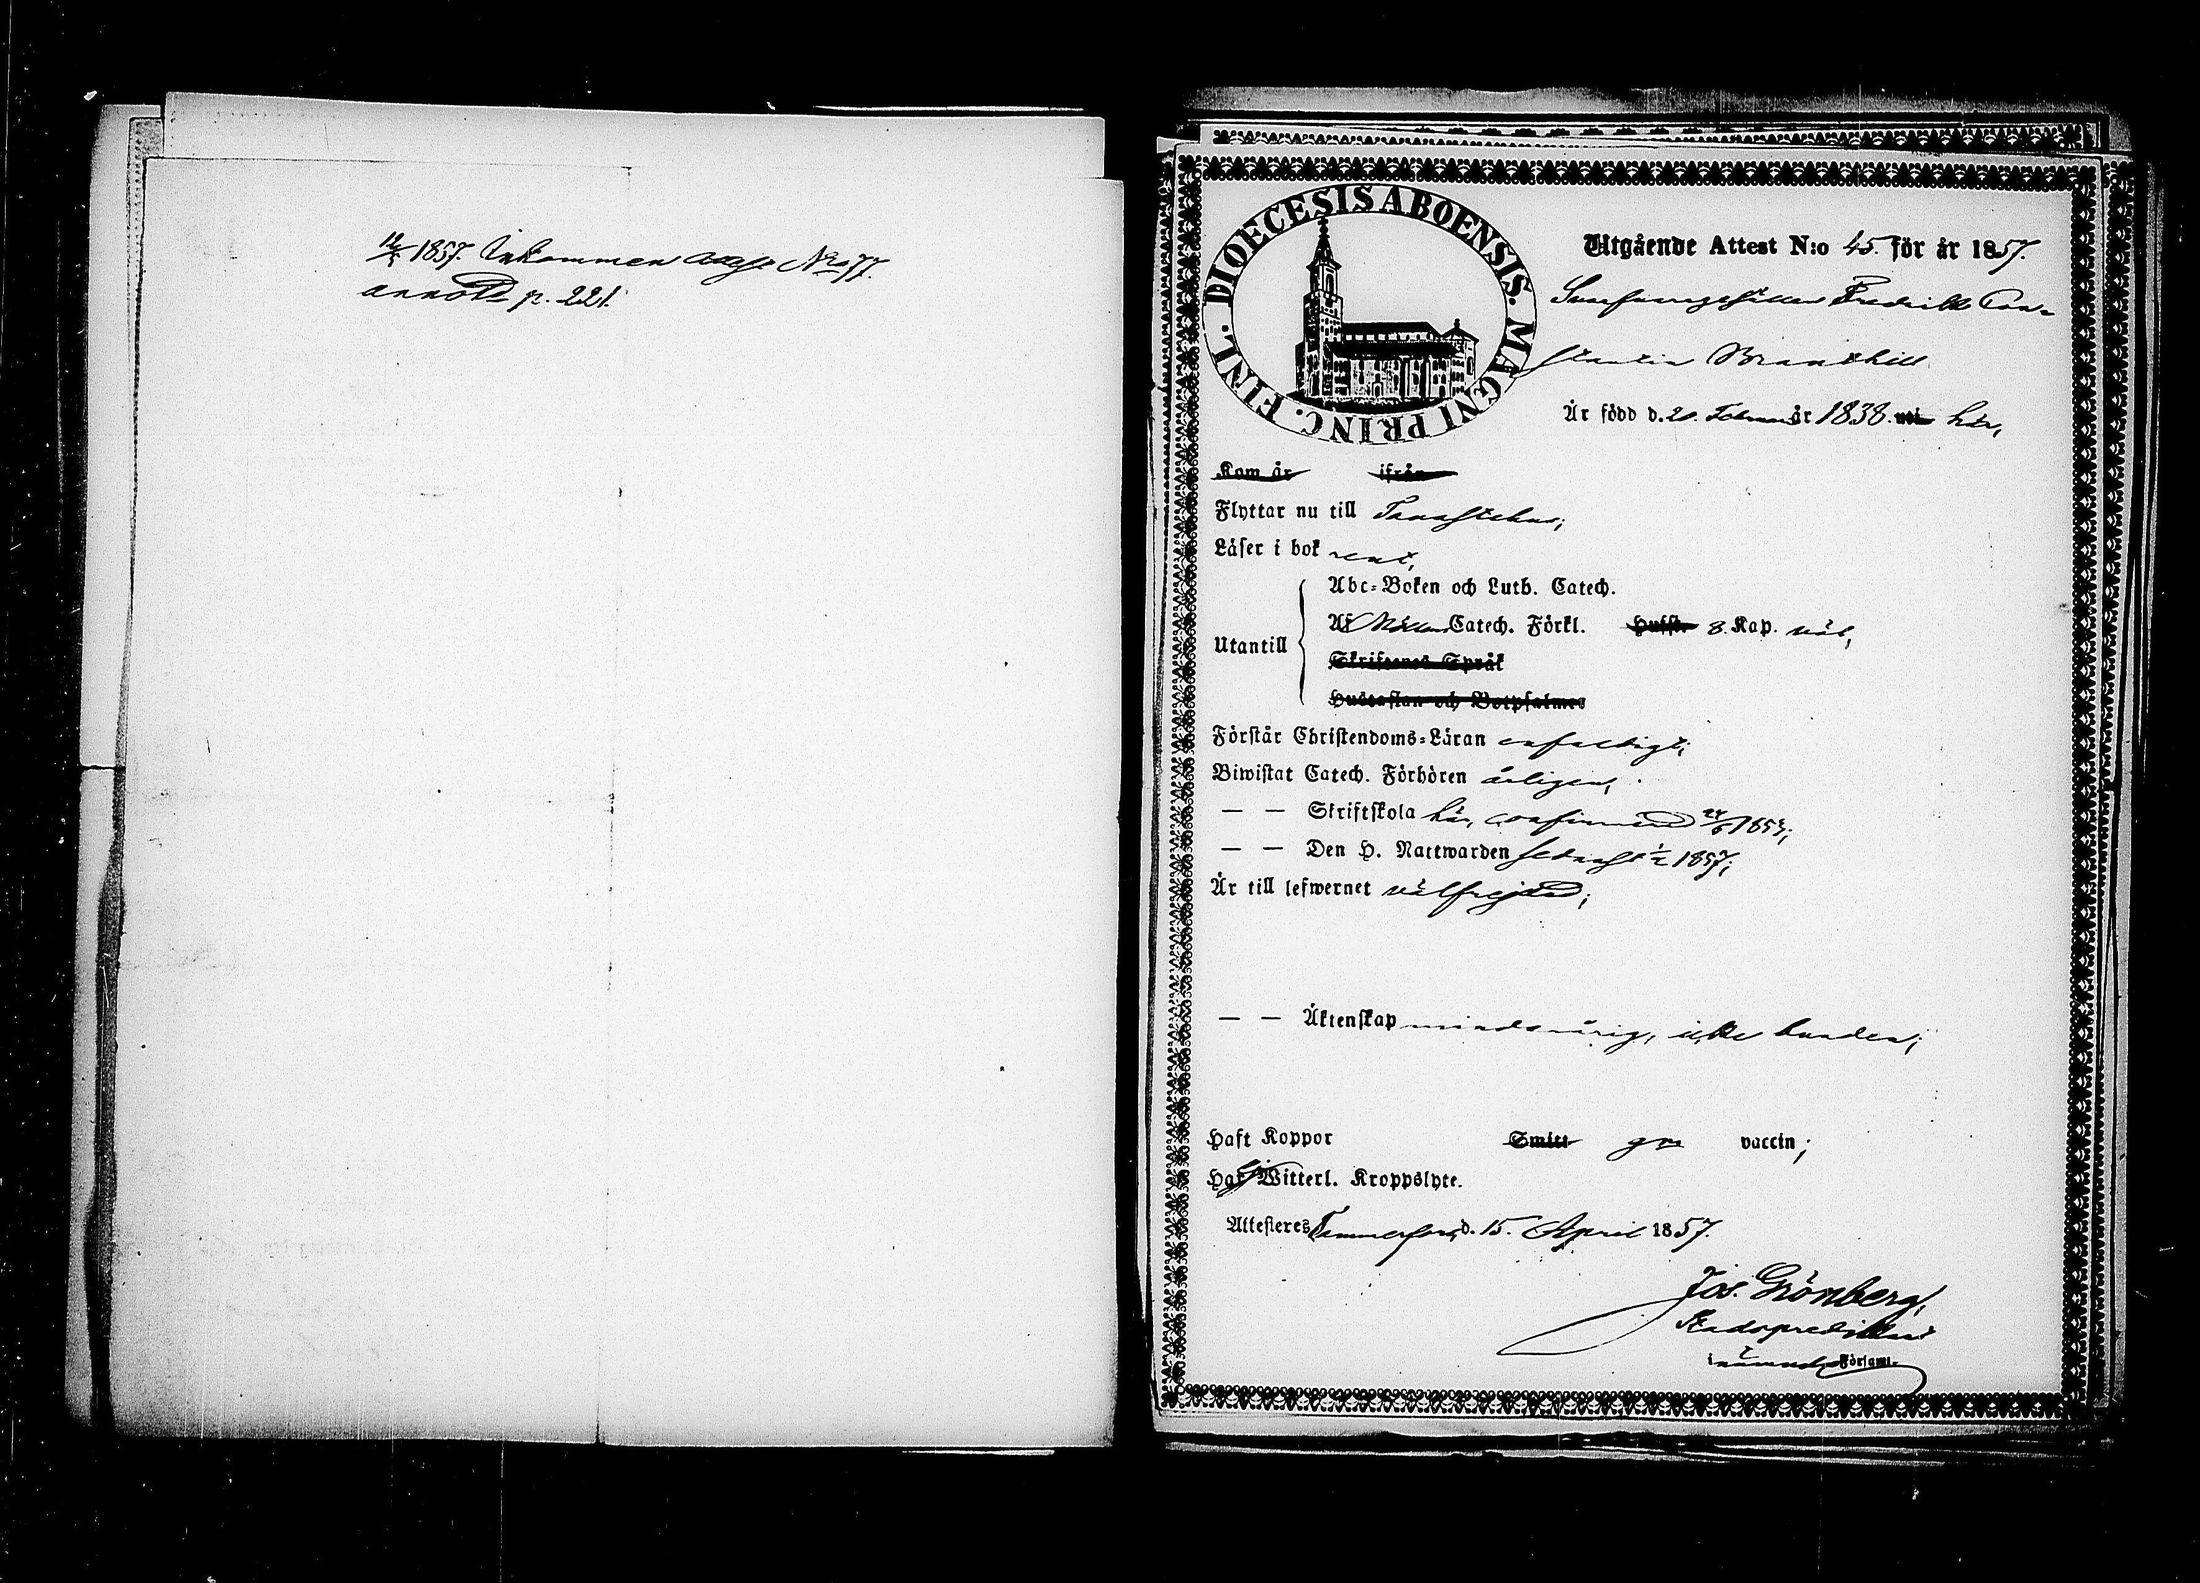 12/5 1857. Inkommen attest No 77.
annoterad p. 221.
DIOECESIS ABOENSIS. MAGNI PRINC. FINL.
Utgående Attest N:o 45. för år 1857.
Fredrik Con-
stantin
Är född d. 20. Februari år 1838. uti här,
Kom år ifrån
Flyttar nu till Tavastehus;
Läser i bok rent,
Abc-Boken och Luth. Catech.
Utantill
Af Catech. Förkl. Hufst. 8. Kap. väl,
Skriftenes Språk
Hustaflan och Botpsalmer
Förstår Christendoms-Läran enfaldigt;
Biwistat Catech. Förhören årligen,
— — Skriftskola här, confirmerad 24/6 1853;
— — Den H. Nattwarden sednast 1/2 1857;
Är till lefwernet välfrejdad;
— — Äktenskap minderårig, icke bunden;
Haft Koppor Smitt gm vaccin;
Har Ej Witterl. Kroppslyte.
Attesteres Tammerfors d. 15. April 1857.
Jos. Grönberg,
Stadspredikant
i nämnde Församl.